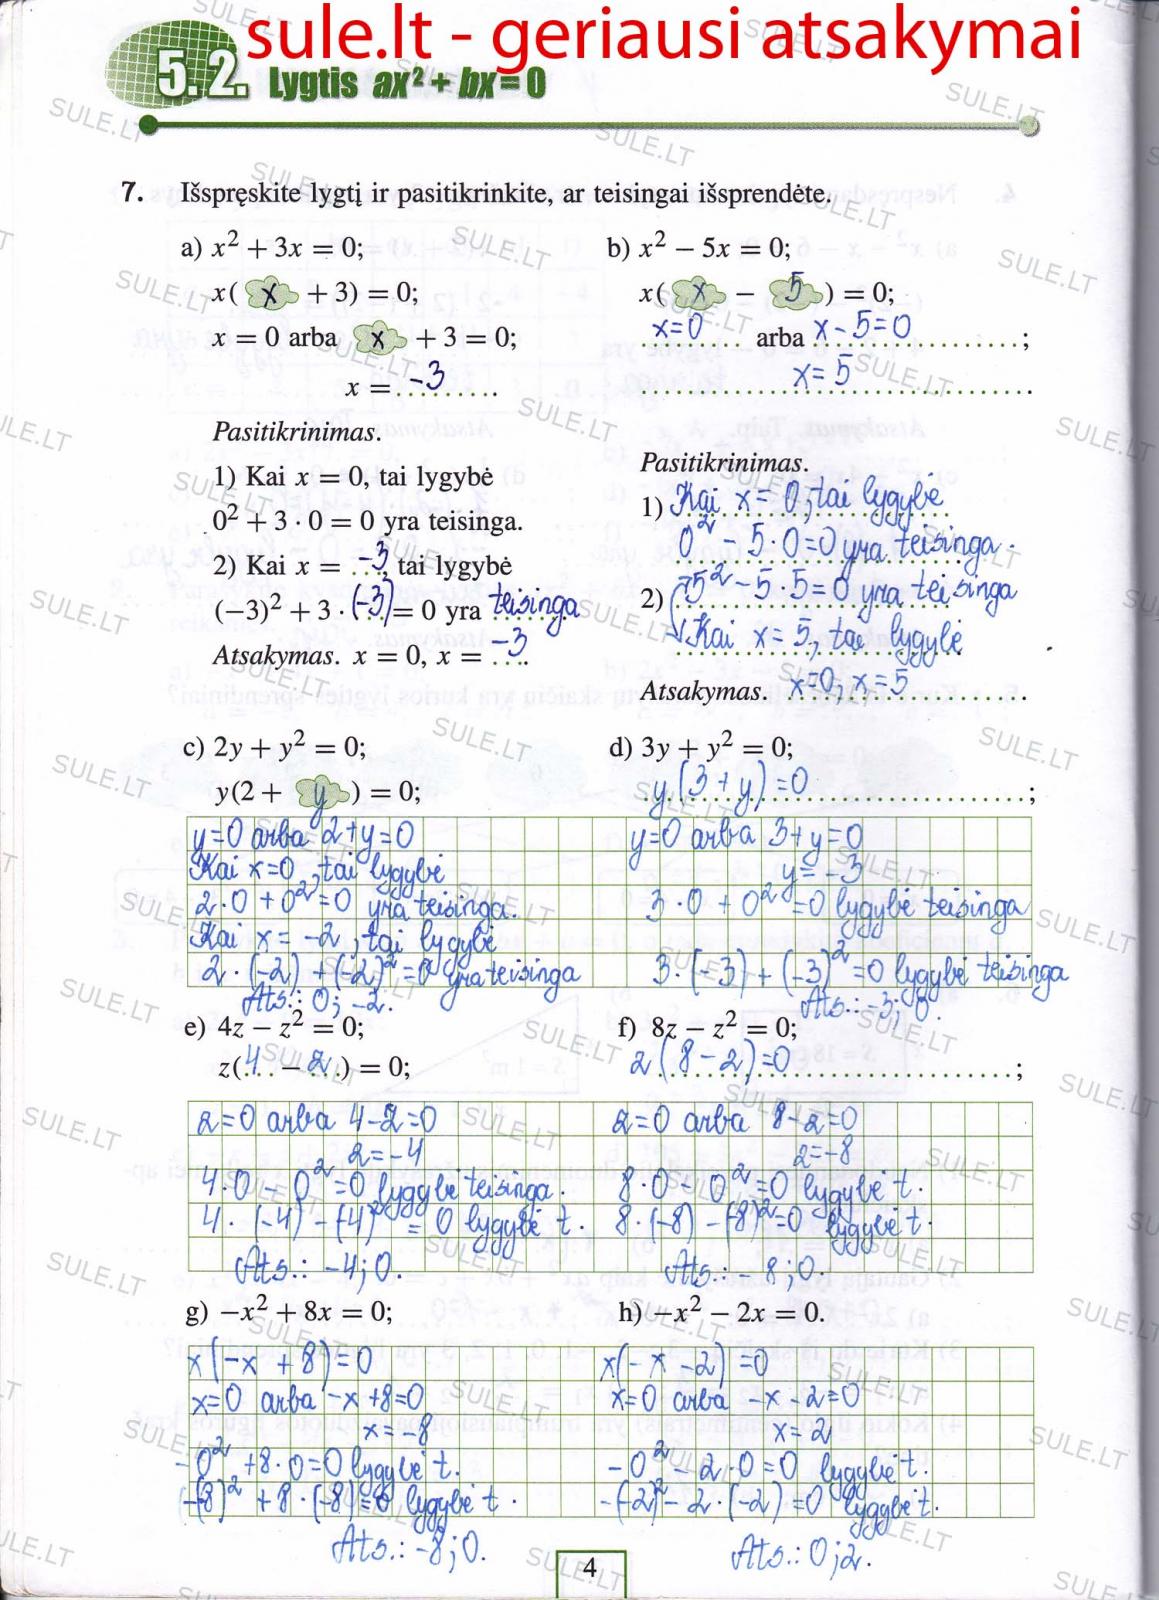 sule.lt - geriausi atsakymai
5.2. Lygtis ax² + bx = 0
7. Išspręskite lygtį ir pasitikrinkite, ar teisingai išsprendėte.
a) x² + 3x = 0;
x( x + 3) = 0;
x = 0 arba x + 3 = 0;
x = -3
Pasitikrinimas.
1) Kai x = 0, tai lygybė
0² + 3 · 0 = 0 yra teisinga.
2) Kai x = -3, tai lygybė
(−3)² + 3 · (-3) = 0 yra teisinga
Atsakymas. x = 0, x = -3.
b) x² − 5x = 0;
x( x − 5 ) = 0;
x=0 arba x-5=0 ;
x=5
Pasitikrinimas.
1) Kai x=0, tai lygybė
0² - 5·0=0 yra teisinga.
2) 5² - 5·5=0 yra teisinga
Kai x=5, tai lygybė
Atsakymas. x=0, x=5
c) 2y + y² = 0;
y(2 + y ) = 0;
y=0 arba 2+y=0
Kai x=0, tai lygybė
2·0+0²=0 yra teisinga.
Kai x=-2, tai lygybė
2·(-2)+(-2)²=0 yra teisinga
Ats.: 0; -2.
d) 3y + y² = 0;
y(3+y)=0 ;
y=0 arba 3+y=0
y=-3
3·0+0²=0 lygybė teisinga
3·(-3)+(-3)²=0 lygybė teisinga
Ats.: -3; 0.
e) 4z − z² = 0;
z(4 − 2 ) = 0;
2=0 arba 4-2=0
2=-4
4·0-0²=0 lygybė teisinga.
4·(-4)-(-4)²=0 lygybė t.
Ats.: -4; 0.
f) 8z − z² = 0;
2(8-2)=0 ;
2=0 arba 8-2=0
2=-8
8·0-0²=0 lygybė t.
8·(-8)-(-8)²=0 lygybė t.
Ats.: 8; 0.
g) −x² + 8x = 0;
x(-x+8)=0
x=0 arba -x+8=0
x=-8
-0²+8·0=0 lygybė t.
-(-8)²+8·(-8)=0 lygybė t.
Ats.: -8; 0.
h) −x² − 2x = 0.
x(-x-2)=0
x=0 arba -x-2=0
x=2
-0²-2·0=0 lygybė t.
-(-2)²-2·(-2)=0 lygybė t.
Ats.: 0; 2.
4
SULE.LT